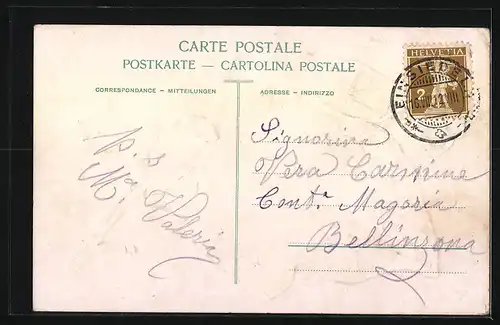 CARTE POSTALE
POSTKARTE — CARTOLINA POSTALE
CORRESPONDANCE - MITTEILUNGEN
ADRESSE - INDIRIZZO
HELVETIA
2
EINSIEDEL
p. s
Ma Valeria
Signorina
Vera Carmine
Conta. Magoria
Bellinzona